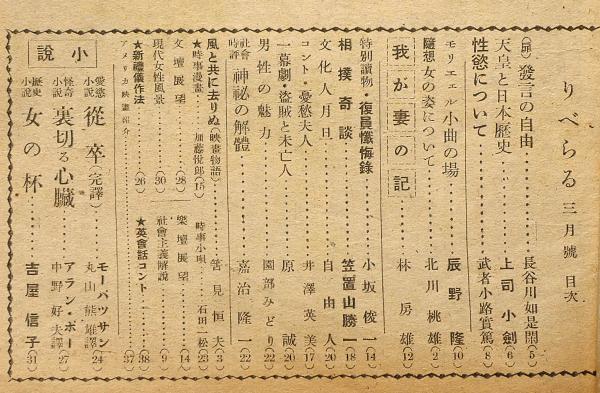 りべらる 三月號 目次
(扉) 發言の自由………長谷川如是閑(5)
天皇と日本歷史………上司小劍(6)
性慾について………武者小路實篤(8)
モリエェル小曲の場………辰野隆(10)
隨想 女の姿について………北川桃雄(2)
我が妻の記………林房雄(12)
特別讀物・復員懺悔錄………小坂俊一(14)
相撲奇談………笠置山勝一(18)
文化人月日………自由人(20)
コント・憂愁夫人………井澤英美(17)
一幕劇・盜賊と未亡人………原誠(20)
男性の魅力………園部みどり(22)
社會時評 神祕の解體………嘉治隆一(22)
風と共に去りぬ(映畫物語)………筈見恒夫(3)
★時事漫畫………加藤悅郎(15)
時事小唄………石田一松(23)
文壇展望………(28)
樂壇展望………(14)
現代女性風景………(30)
社會主義解說………(9)
★新禮儀作法………(26)
★英會話コント………(38)
アメリカ映畫紹介………(37)
小說
愛慾小說 從卒(完譯)………モーパッサン 丸山熊雄譯(24)
怪奇小說 裏切る心臟………アラン・ポー 中野好夫譯(27)
歷史小說 女の杯………吉屋信子(31)